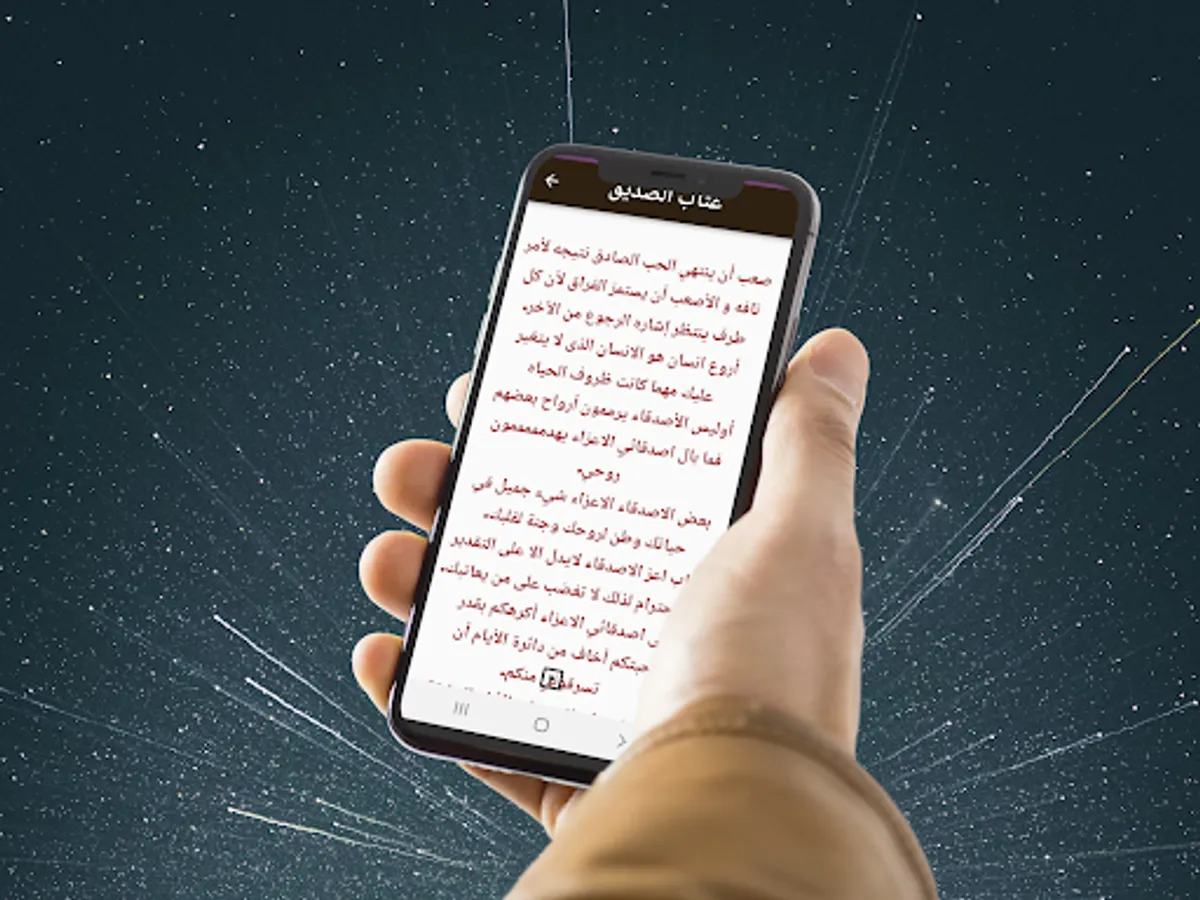 عتاب الصديق
صعب أن ينتهي الحب الصادق نتيجه لأمر
تافه و الأصعب أن يستمر الفراق لأن كل
طرف ينتظر إشاره الرجوع من الآخر.
أروع انسان هو الانسان الذى لا يتغير
عليك مهما كانت ظروف الحياه
أوليس الأصدقاء يرممون أرواح بعضهم
فما بال اصدقائي الاعزاء يهدمممممون
روحي.
بعض الاصدقاء الاعزاء شيء جميل في
حياتك وطن لروحك وجنة لقلبك.
اعز الاصدقاء لايدل الا على التقدير
لذلك لا تغضب على من يعاتبك.
اصدقائي الاعزاء أكرهكم بقدر
أخاف من دائرة الأيام أن
منكم.